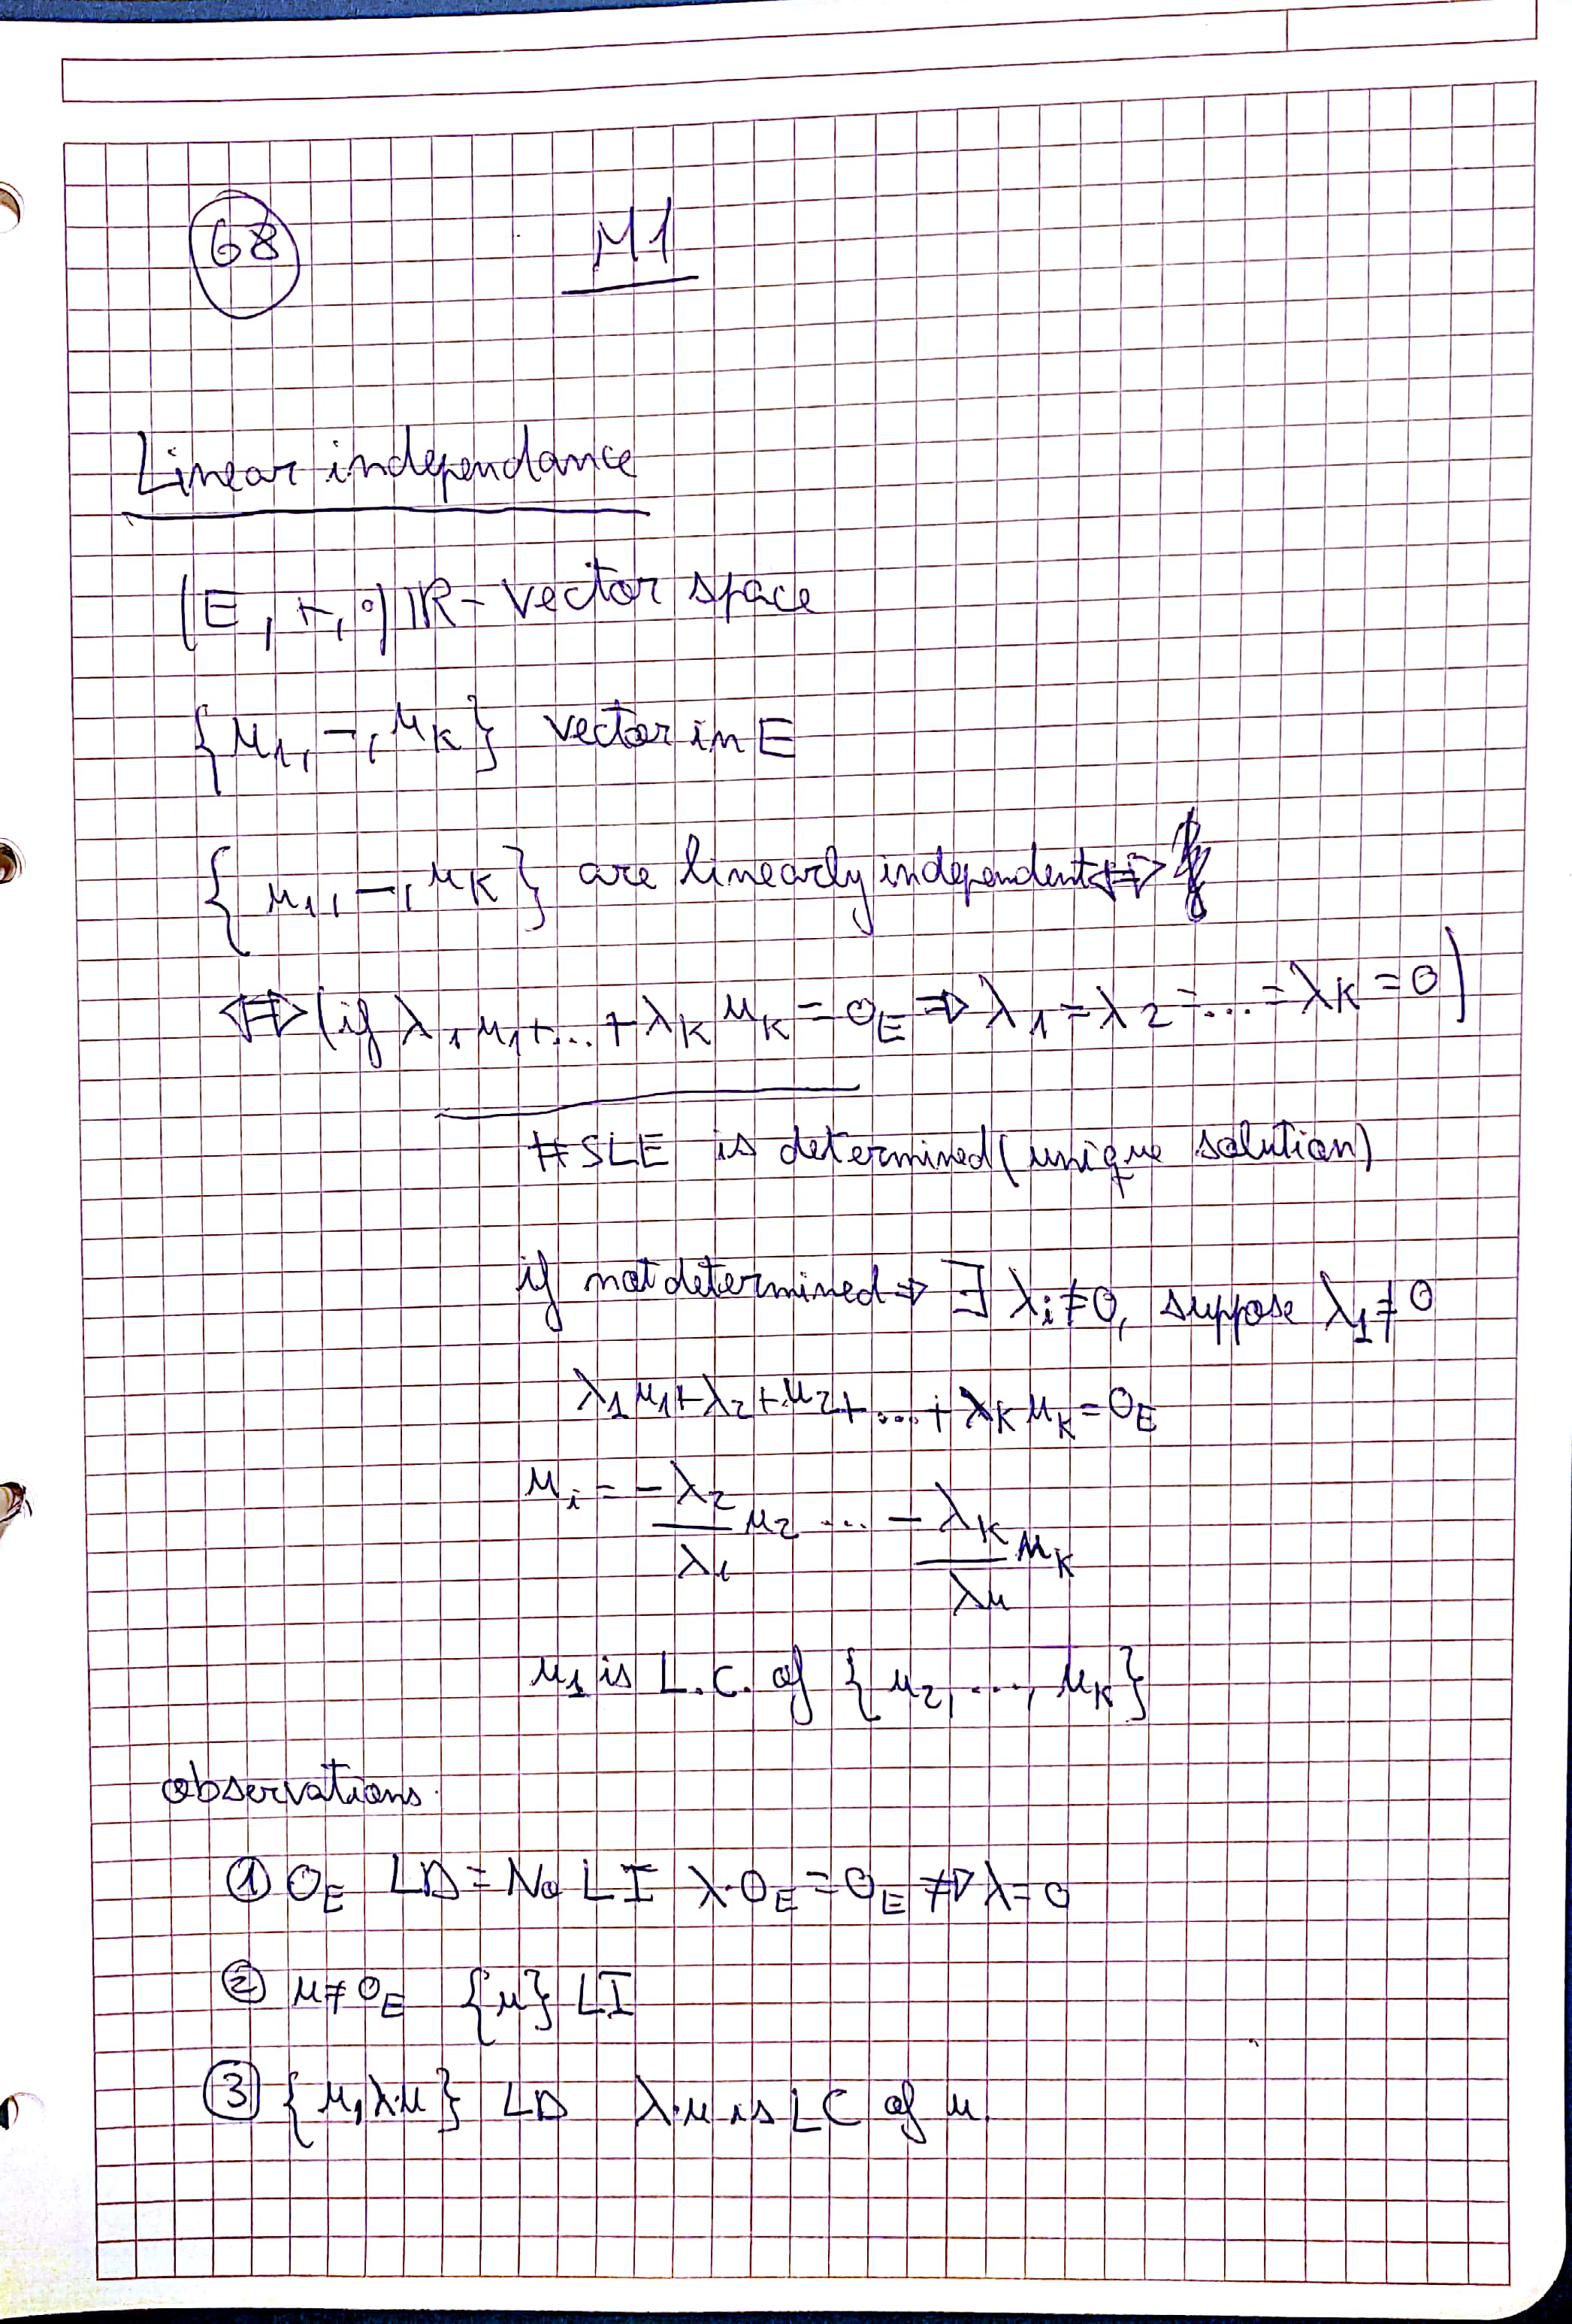 68 M1
Linear independance
(E, +, ∘) ℝ-vector space
{μ1, –, μK} vector in E
{μ1, –, μK} are linearly independent ⇔
⇔ (if λ1 μ1 + ... + λK μK = 0E ⇒ λ1 = λ2 = ... = λK = 0)
# SLE is determined (unique solution)
if not determined ⇒ ∃ λi ≠ 0, suppose λ1 ≠ 0
λ1 μ1 + λ2 + μ2 + ... + λK μK = 0E
μi = -λ2/λ1 μ2 ... - λK/λμ μK
μ1 is L.C. of {μ2, ..., μK}
observations.
① 0E LD = No LI λ·0E = 0E ⇏ λ = 0
② μ ≠ 0E {μ} LI
③ {μ, λ·μ} LD λ·μ is LC of μ.